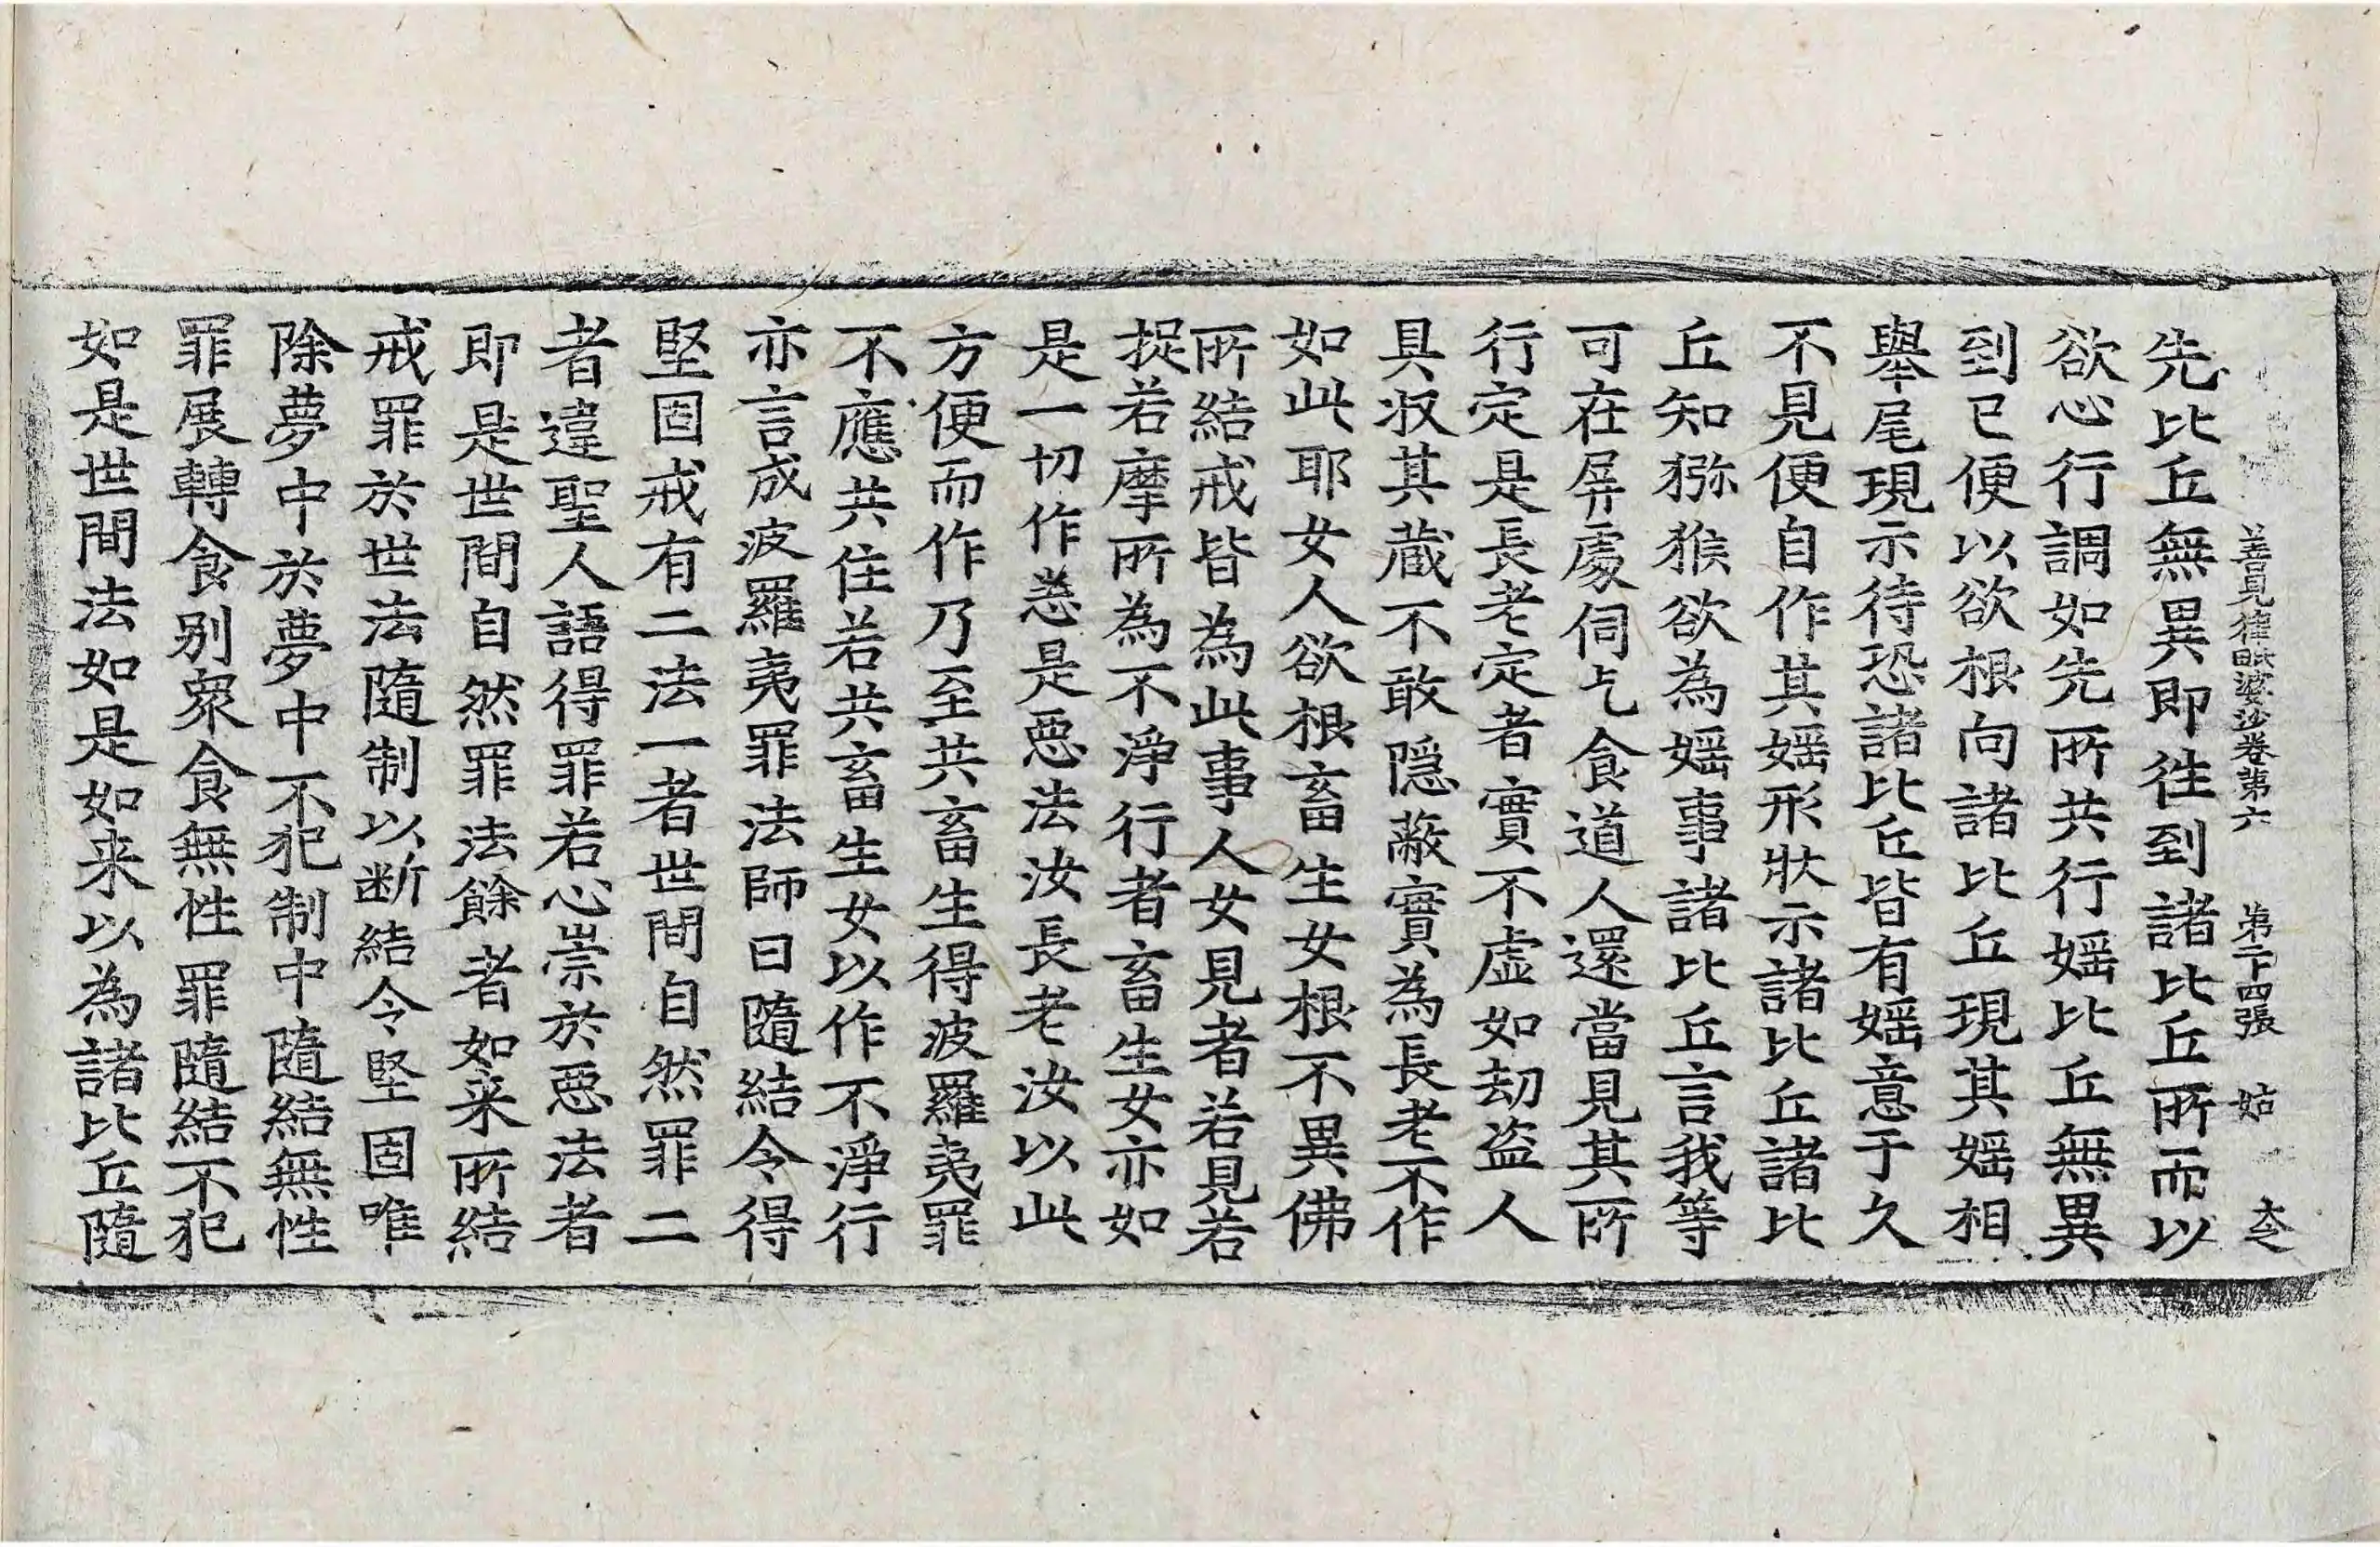 善見律毗婆沙卷第六 第二十四張 姑
先比丘無異即往到諸比丘所而以
欲心行調如先所共行婬比丘無異
到已便以欲根向諸比丘現其婬相
舉尾現示待恐諸比丘皆有婬意于久
不見便自作其婬形狀示諸比丘諸比
丘知猕猴欲為婬事諸比丘言我等
可在屏處伺乞食道人還當見其所
行定是長老定者實不虛如劫盜人
具収其蔵不敢隱蔽實為長老不作
如此耶女人欲根畜生女根不異佛
所結戒皆為此事人女見者若見若
捉若摩所為不淨行者畜生女亦如
是一切作悉是惡法汝長老汝以此
方便而作乃至共畜生得波羅夷罪
不應共住若共畜生女以作不淨行
亦言成波羅夷罪法師曰隨結令得
堅固戒有二法一者世間自然罪二
者違聖人語得罪若心崇於惡法者
即是世間自然罪法餘者如来所結
戒罪於世法隨制以断結令堅固唯
除夢中於夢中不犯制中隨結無性
罪展轉食别衆食無性罪隨結不犯
如是世間法如是如来以為諸比丘隨